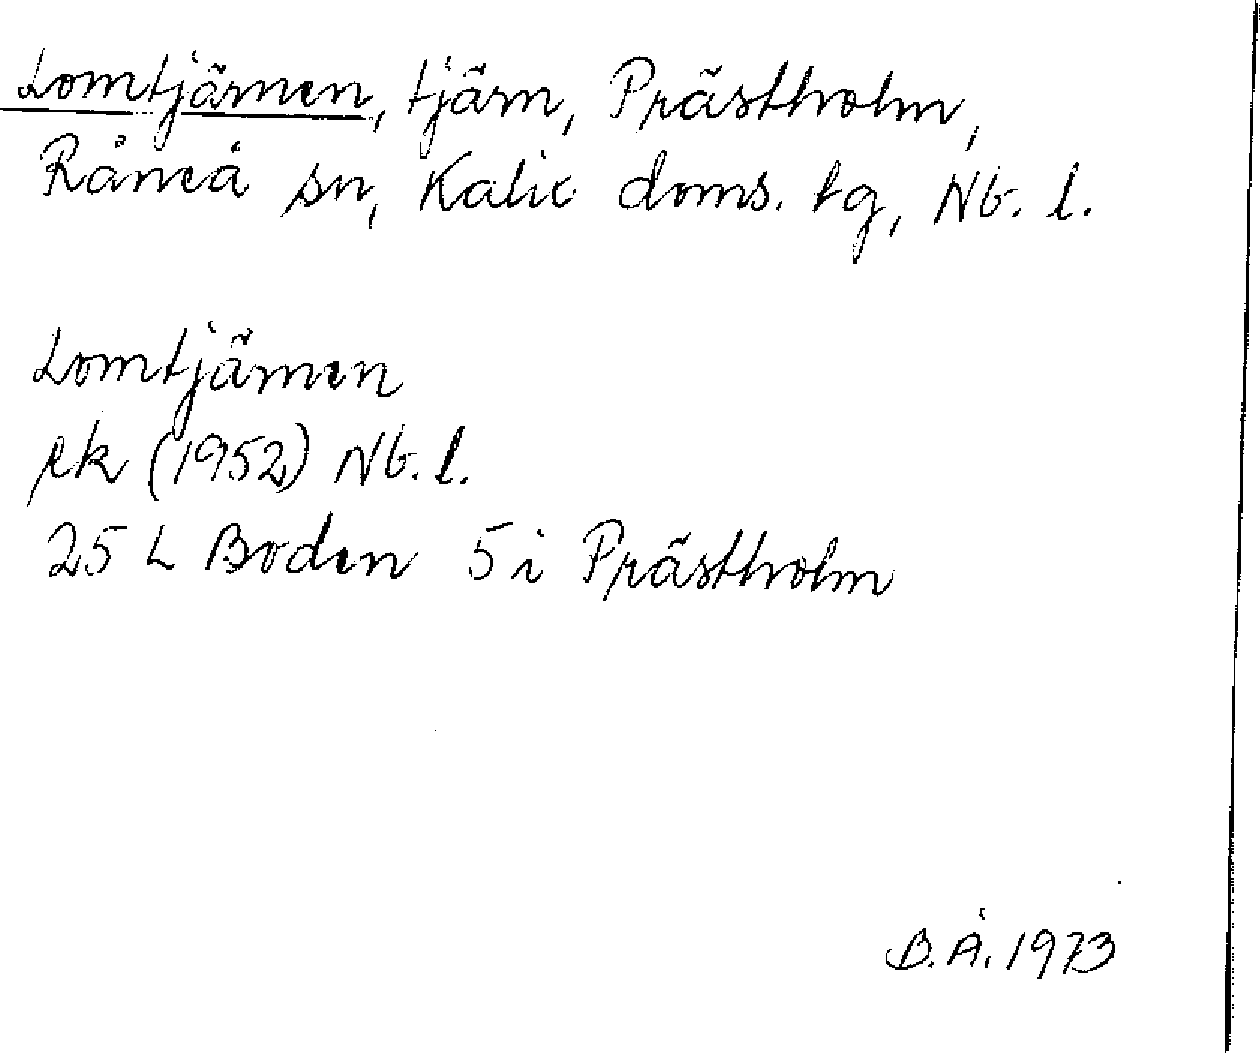 Lomtjärnen, tjärn, Prästholm,
Råneå sn, Kalix doms. tg, Nb. l.
Lomtjärnen
ek (1952) Nb. l.
25 L Boden 5 i Prästholm
B.Å. 1973